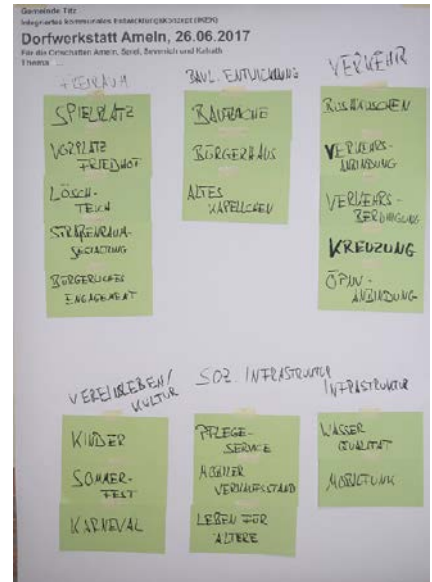 Gemeinde Titz
Integriertes kommunales Entwicklungskonzept (IKEK)
Dorfwerkstatt Ameln, 26.06.2017
Für die Ortschaften Ameln, Spiel, Sevenich und Kalrath
Thema
FREIRAUM
SPIELPLATZ
VORPLATZ
FRIEDHOF
LÖSCH-
TEICH
STRAßENRAUM-
GESTALTUNG
BÜRGERLICHES
ENGAGEMENT
BAUL. ENTWICKLUNG
BAUBRACHE
BÜRGERHAUS
ALTES
KAPELLCHEN
VERKEHR
BUSHÄUSCHEN
VERKEHRS-
ANBINDUNG
VERKEHRS-
BERUHIGUNG
KREUZUNG
ÖPNV-
ANBINDUNG
VEREINSLEBEN/
KULTUR
KINDER
SOMMER-
FEST
KARNEVAL
SOZ. INFRASTRUKTUR
PFLEGE-
SERVICE
MOBILER
VERKAUFSSTAND
LEBEN FÜR
ÄLTERE
INFRASTRUKTUR
WASSER
QUALITÄT
MOBILFUNK